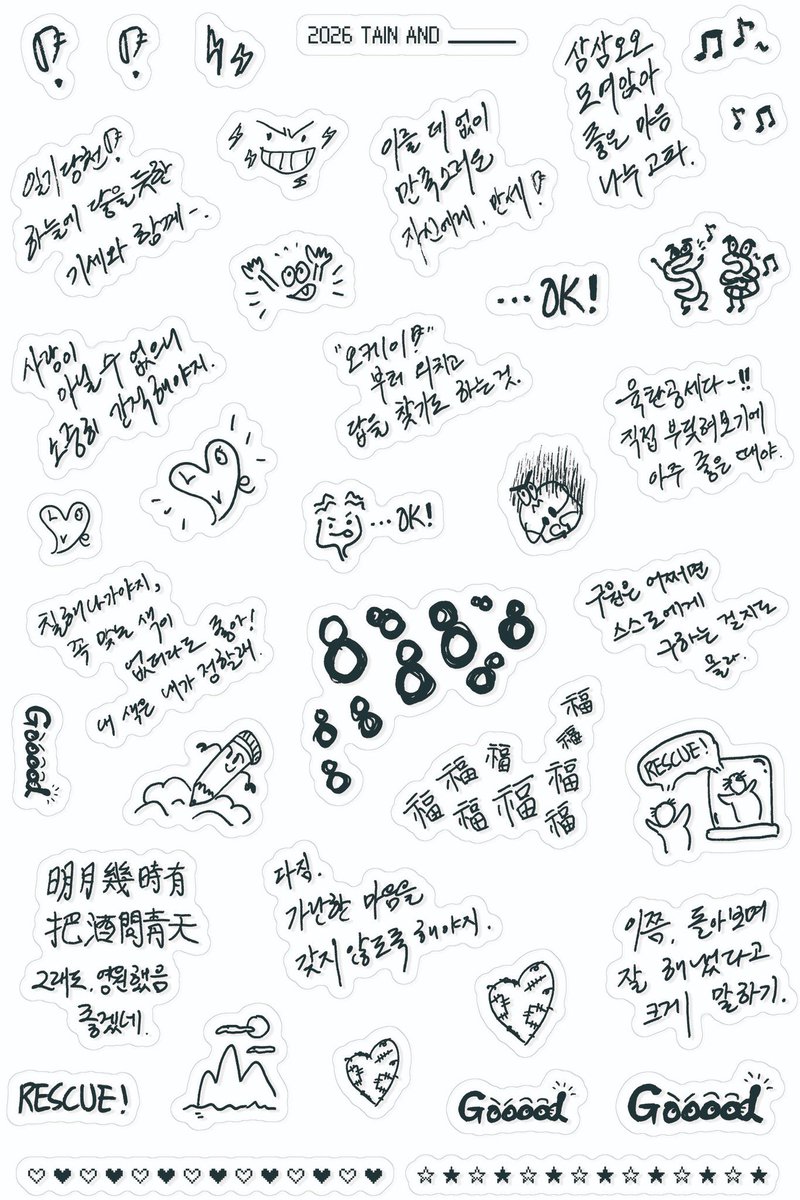 2026 TAIN AND
삼삼오오
모여앉아
좋은 마음
나누고파.
일기당천!
하늘에 닿을 듯한
기세와 함께-.
이를 데 없이
만족스러운
자신에게, 만세!
...OK!
사랑이
아닐 수 없으니
소중히 간직해야지.
"오케이!"
부터 외치고
답을 찾기도 하는 것.
육탄공세다-!!
직접 부딪혀보기에
아주 좋은 때야.
L O V e
L O V e
...OK!
칠해나가야지,
꼭 맞는 색이
없더라도 좋아!
내 색은 내가 정할래.
구원은 어쩌면
스스로에게
구하는 걸지도
몰라.
Gooood
8 8 8 8 8 8 8 8 8 8
福
福
福 福 福
福 福 福 福 福
RESCUE!
明月幾時有
把酒問青天
그래도, 영원했음
좋겠네.
다짐.
가난한 마음을
갖지 않도록 해야지.
이쯤, 돌아보며
잘 해냈다고
크게 말하기.
RESCUE!
Gooood
Gooood